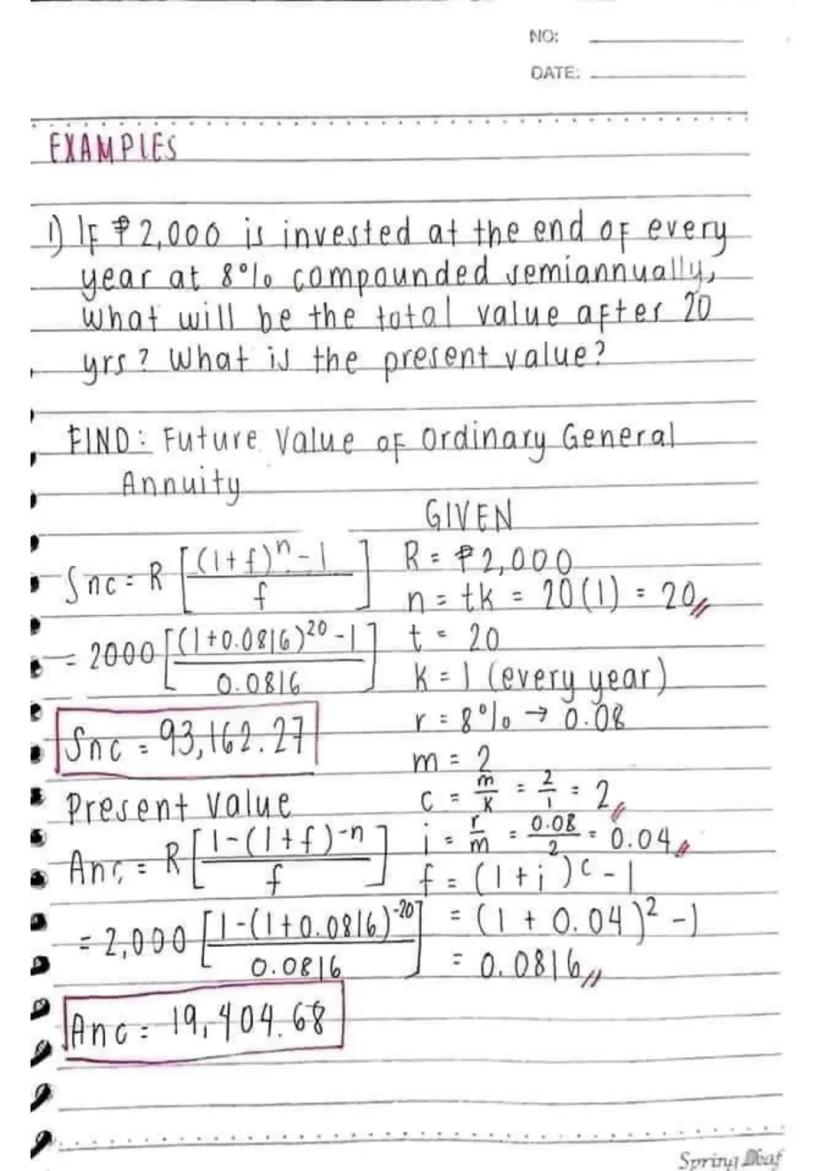 NO:
DATE:
EXAMPLES
1) IF ₱2,000 is invested at the end of every
year at 8% compounded semiannually,
what will be the total value after 20
yrs? What is the present value?
FIND: Future Value of Ordinary General
Annuity
GIVEN
Snc = R [(1+f)^n - 1 / f]
R = ₱2,000
n = tk = 20(1) = 20
= 2000 [(1+0.0816)^20 - 1 / 0.0816]
t = 20
k = 1 (every year)
Snc = 93,162.27
r = 8% → 0.08
m = 2
Present Value
c = m/k = 2/1 = 2
Anc = R [1-(1+f)^-n / f]
i = r/m = 0.08/2 = 0.04
f = (1+i)^c - 1
= 2,000 [1-(1+0.0816)^-20 / 0.0816]
= (1 + 0.04)^2 - 1
= 0.0816
Anc = 19,404.68
Spring Leaf